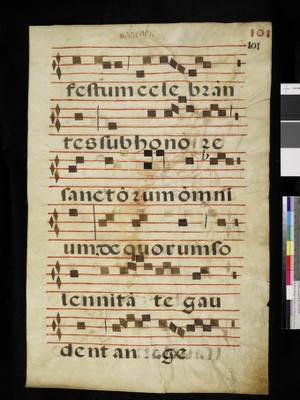 101
101
festum cele bran
tes sub hono re
sanctorum omni
um de quorum so
lennita te gau
dent an ge